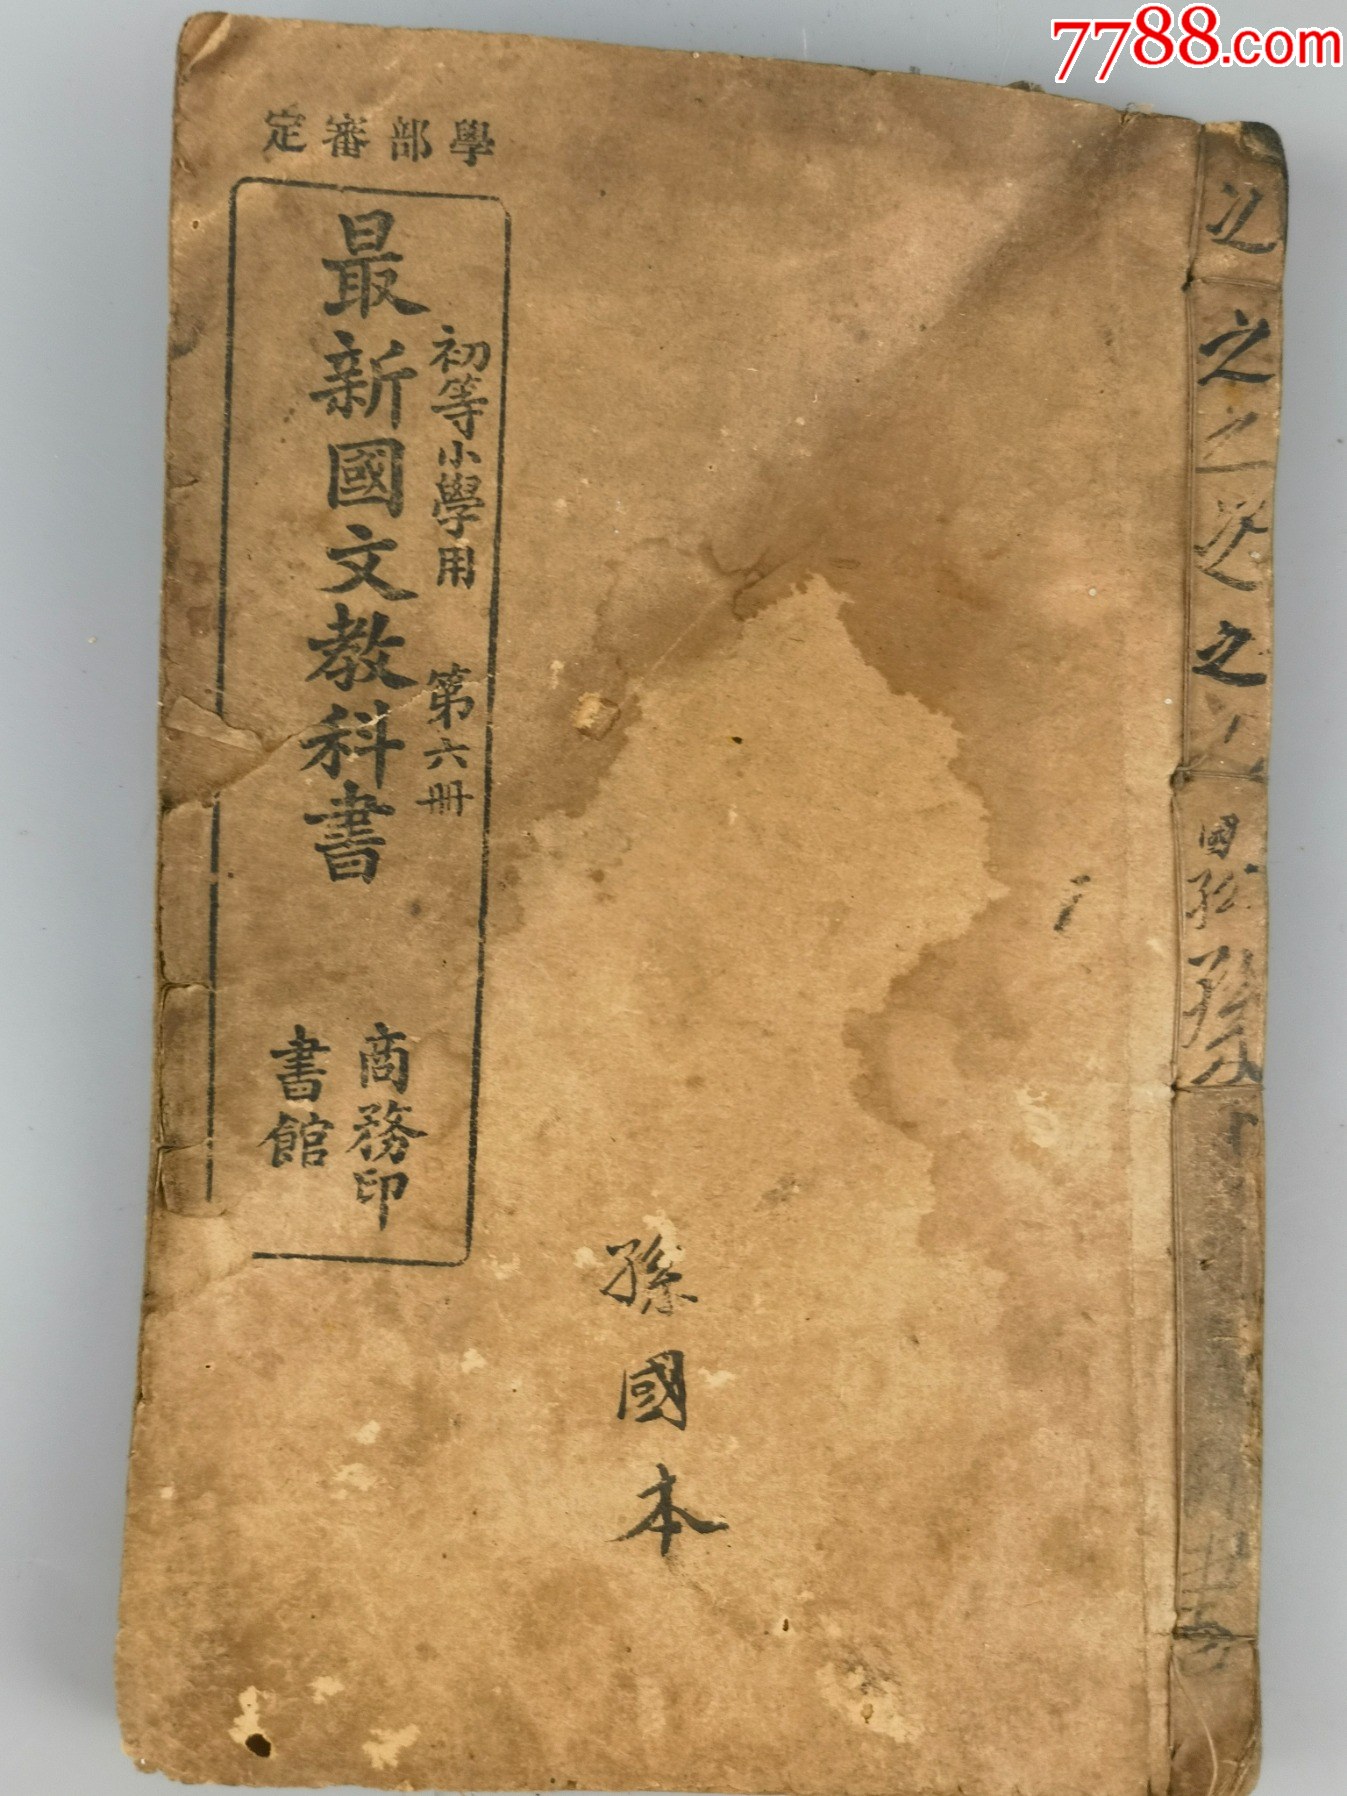 7788.com
學部審定
初等小學用 第六冊
最新國文教科書
商務印
書館
孫國本
之
之
之
國
孫